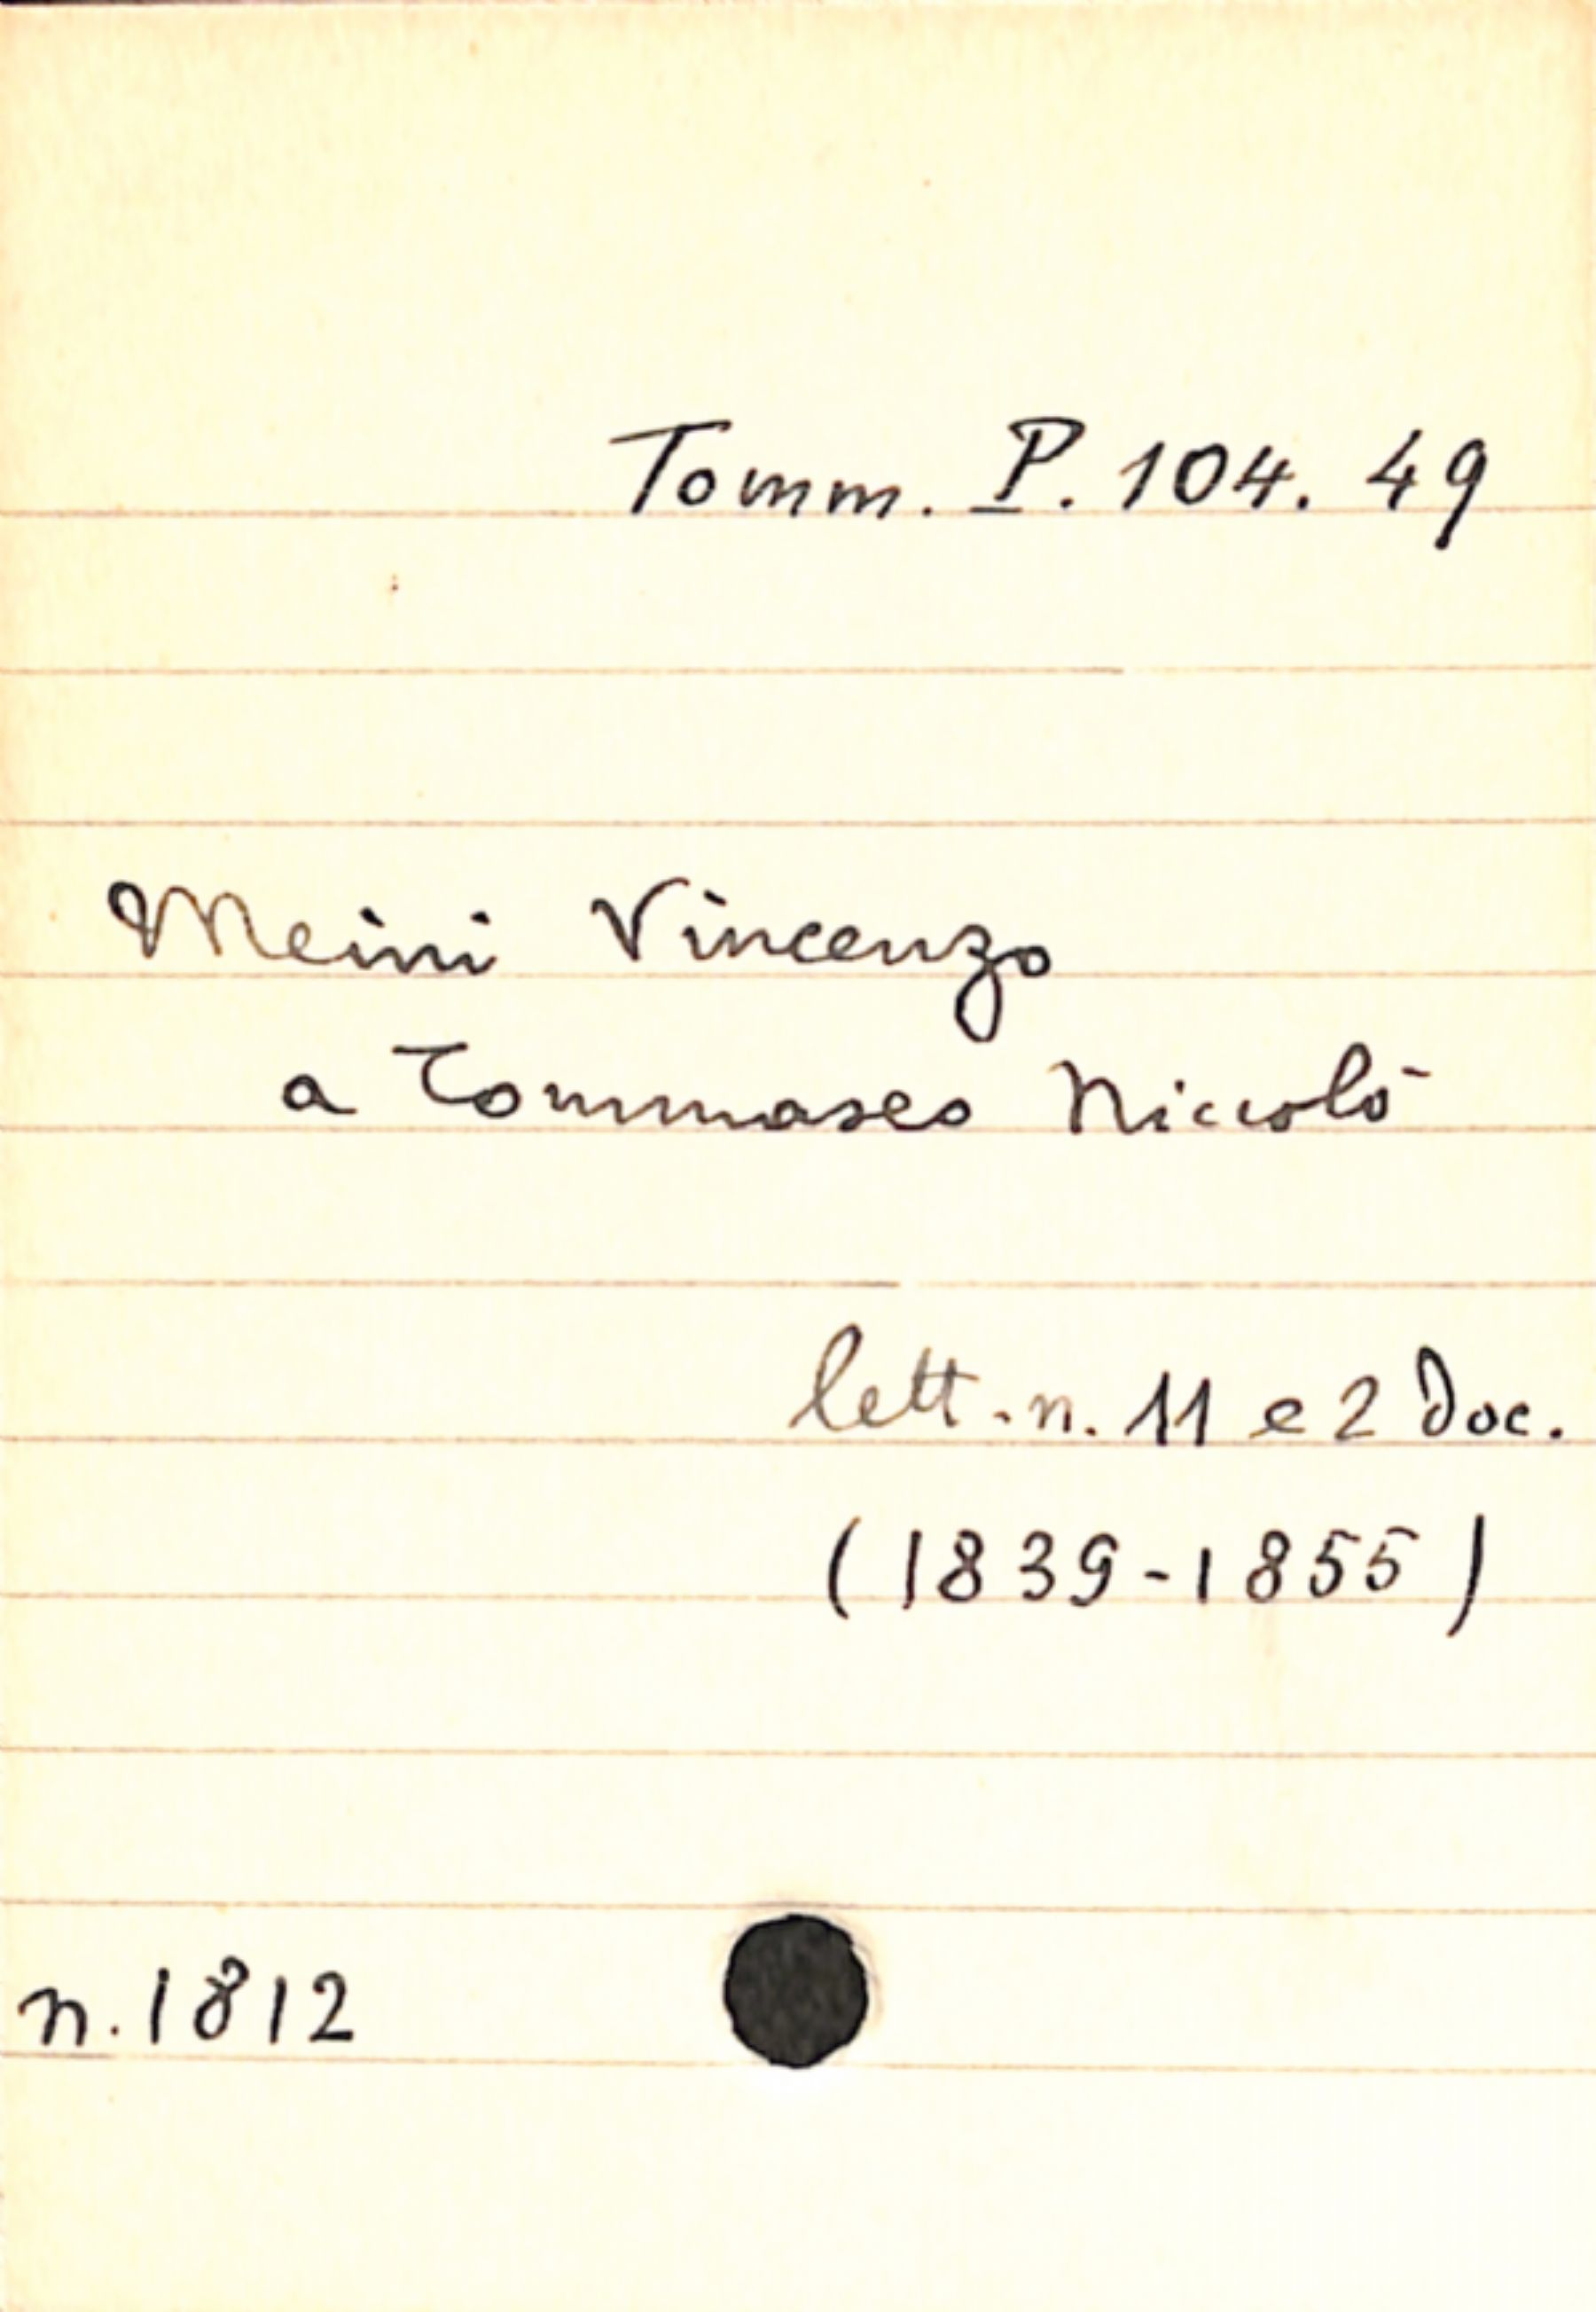 Tomm. P. 104. 49
Meini Vincenzo
a Tommaseo Niccolò
lett. n. 11 e 2 doc.
(1839-1855)
n. 1812